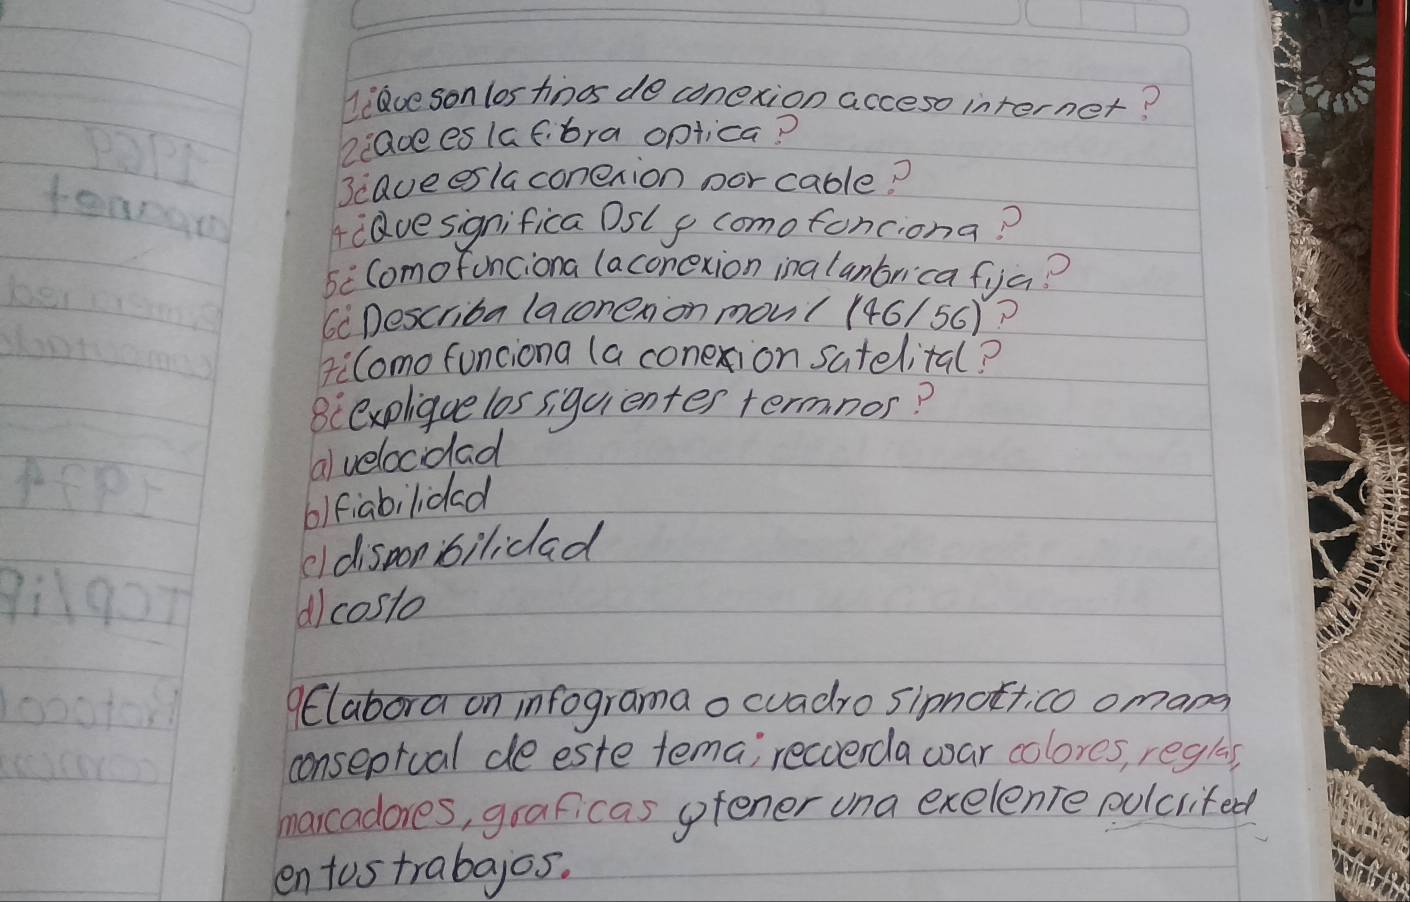 1¿Que son los tipos de conexion acceso internet?
2¿Que es la fibra optica?
3¿Que es la conexion por cable?
4¿Que significa DSL y como funciona?
5¿Como funciona la conexion inalanbrica fija?
6¿Describa la conexion movil (4G/5G)?
7¿Como funciona la conexion satelital?
8¿explique los siguientes terminos?
a) velocidad
b) fiabilidad
c) disponibilidad
d) costo
9Elabora un infograma o cuadro sipnottico o mapa
conseptual de este tema; recuerda usar colores, reglas,
marcadores, graficas y tener una exelente pulcrited
en tus trabajos.